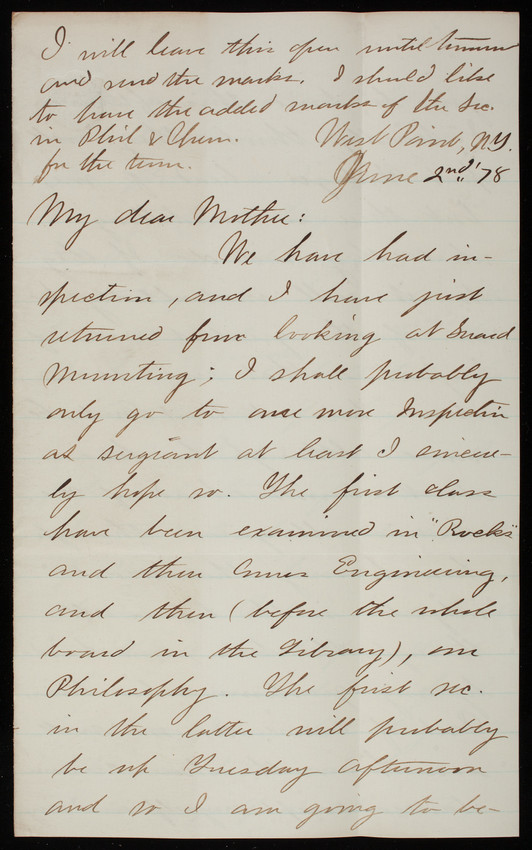 I will leave this open until
and send the marks. I should like
to have the added marks of the Sec.
in Phil & Chem.
for the term.
West Point, NY.
June 2nd '78
My dear Mother:
We have had in-
spection, and I have just
returned from looking at Guard
Mounting; I shall probably
only go to one more Inspection
as sergiant at least I sincere-
ly hope so. The first class
have been examined in "Rocks"
and then comes Engineering,
and then (before the whole
board in the Library), our
Philosophy. The first sec.
in the latter will probably
be up Tuesday afternoon
and so I am going to be-